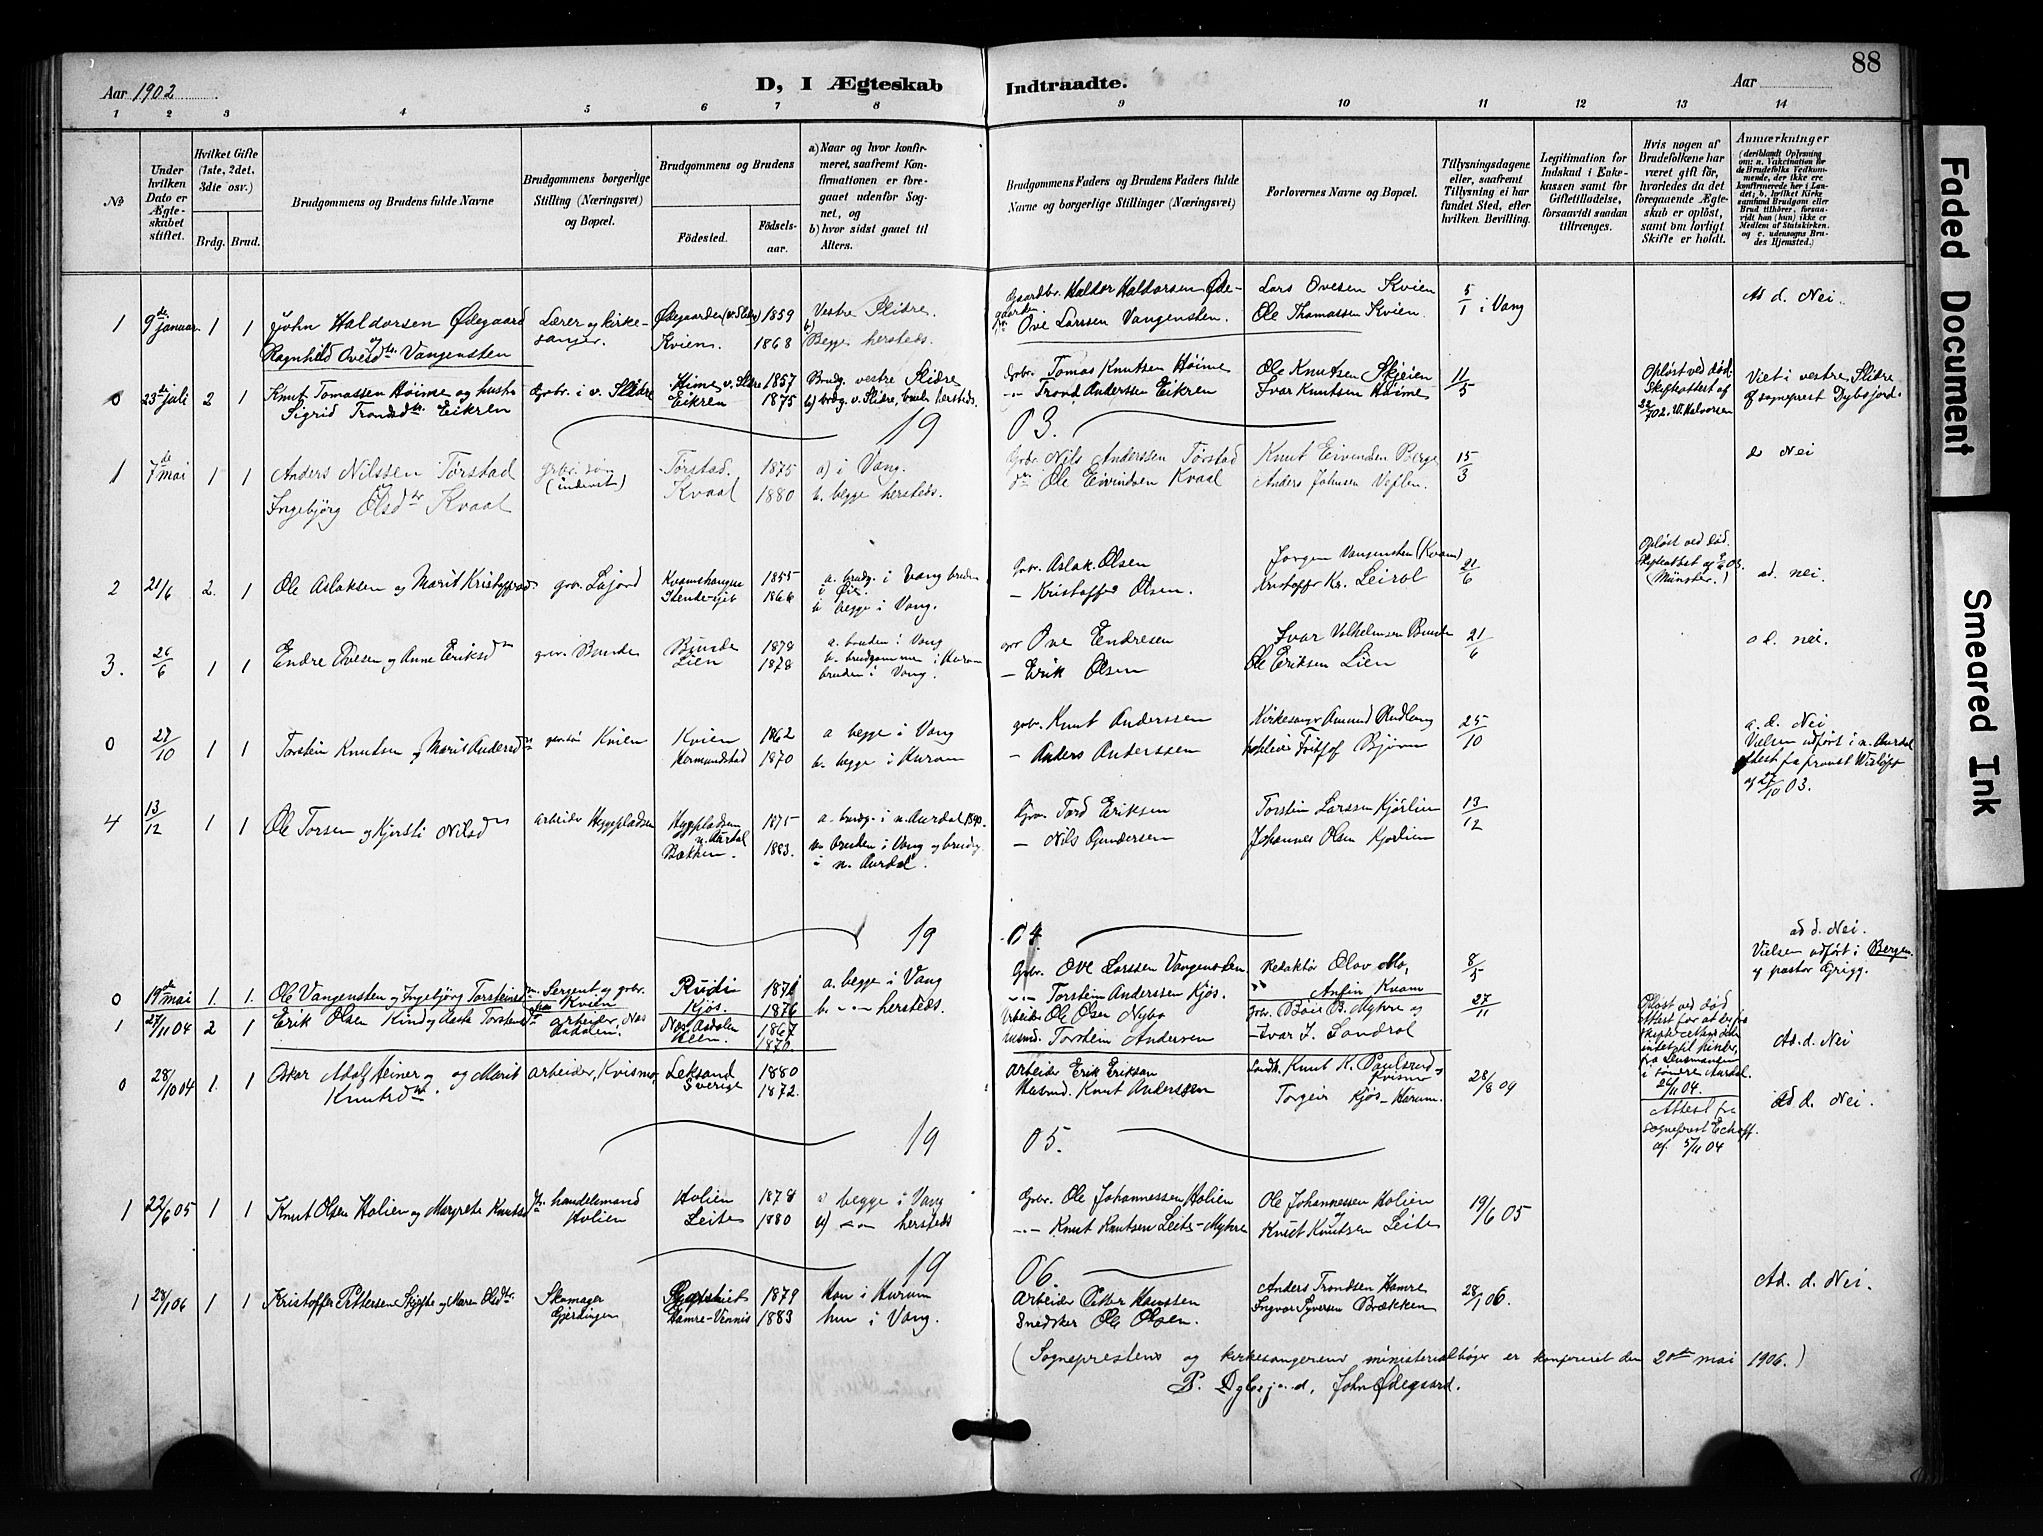 88
Aar 1902
D, I Ægteskab Indtraadte.
Aar
1 2 3 4 5 6 7 8 9 10 11 12 13 14
No
Under hvilken Dato er Ægteskabet stiftet.
Hvilket Gifte (1ste, 2det, 3die osv.)
Brdg. Brud.
Brudgommens og Brudens fulde Navne
Brudgommens borgerlige Stilling (Næringsvei) og Bopæl.
Brudgommens og Brudens
Födested.
Födselsaar.
a) Naar og hvor konfirmeret, saafremt Konfirmationen er foregaaet udenfor Sognet, og
b) hvor sidst gaaet til Alters.
Brudgommens Faders og Brudens Faders fulde Navne og borgerlige Stillinger (Næringsvei)
Forlovernes Navne og Bopæl.
Tillysningsdagene eller, saafremt Tillysning ei har fundet Sted, efter hvilken Bevilling.
Legitimation for Indskud i Enkekassen samt for Giftetilladelse, forsaavidt saadan tiltrænges.
Hvis nogen af Brudefolkene har været gift för, hvorledes da det foregaaende Ægteskab er oplöst, samt om lovligt Skifte er holdt.
Anmærkninger
(deriblandt Oplysning om: a. Vakcination for de Brudefolks Vedkommende, der ikke ere konfirmerede her i Landet; b. hvilket Kirkesamfund Brudgom eller Brud tilhörer, forsaavidt han (hun) ikke er Medlem af Statskirken, og c. udensogns Brudes Hjemsted.)
1 9de januar 1 1 John Haldorsen Ødegaard Lærer og kirkesanger. Ødegaarden (v. Slidre) 1859 Vestre Slidre. Gaardbr. Haldor Haldorsen Ødegaarden Lars Ovesen Kvien 5/1 i Vang Ad d. Nei.
og Ragnhild Ovesdtr. Vangensten Kvien 1868 b) Begge hersteds. Ove Larssen Vangensten. Ole Thomassen Kvien.
0 23de juli 2 1 Knut Tomassen Høime og hustr. Gbr. i v. Slidre Høime v. Slidre 1857 Brudg. vestre Slidre Gbr. Tomas Knutsen Høime Ole Knutsen Skjeien 11/5 Opløst ved død. Skifteattest af Viet i vestre Slidre
Sigrid Trondsdtr. Eikren Eikren 1875 b) brdg. v. Slidre, bruden hersteds. -"- Trond Anderssen Eikren Ivar Knutsen Høime 02. Halvorsen af sogneprest Dybsjord.
19 03.
1 7de mai 1 1 Anders Nilssen Tørstad gbr. søn Tørstad. 1875 a) i Vang. Gbr. Nils Anderssen Tørstad Knut Eivindsen Berge 15/3 d Nei
Ingebjörg Olsdtr Kvaal Kvaal 1880 b. begge hersteds. do Ole Eivindsen Kvaal Anders Johnsen Veflen.
2 21/6 2. 1 Ole Aslaksen og Marit Kristoffersd. gbr. Lajord 1855 a. brudg. i Vang bruden i Øie. gbr. Aslak Olsen Jørgen Vangensten (Kvam) 21/6 Opløst ved død. (Münster.) ad. nei.
1866 b begge i Vang. - Kristoffer Olsen. Kristoffer Kr. Leirol
3. 21/6 1 1 Endre Ovesen og Anne Eriksdtr gbr. Bunde Bunde 1878 a. bruden i Vang gbr Ove Endresen Ivar Vilhelmsen Bunde 21/6 a d. nei.
Lien 1878 b. brudgommen i Hurum bruden i Vang. - Erik Olsen Ole Eriksen Lien
0 27/10 1 1 Torstein Knutsen og Marit Andersdtr Kvien Kvien 1862 a begge i Vang gbr. Knut Anderssen Kirkesanger Amund Rudlang 25/10 a. d. Nei
Hermundstad 1870 b. begge i Hurum - Anders Anderssen Fritjof Bjørn Vielsen udført i n. Aurdal attest fra provst Wisløff af 27/10 03.
4 13/12 1 1 Ole Torsen og Kjersti Nilsdtr arbeider Hyppladsen Hyppladsen n. Aurdal 1875 a. brudg. i n. Aurdal 1890. Gbr. Tord Eriksen Torstein Larssen Kjørlien 13/12
Bækken. 1883. b. bruden i Vang og brudg. i n. Aurdal. - Nils Gundersen Johannes Olsen Kjørlien
19 04.
ad d. Nei.
0 19de mai 1. 1. Ole Vangensten og Ingebjørg Torsteinsd. Sergent og gbr. Kvien Rudi 1871 a. begge i Vang Gbr. Ove Larssen Vangensten. Redaktør Olav Mo, 8/5 Vielsen udført i Bergen af pastor Grigg.
Kjøs. 1876 b. -"- hersteds. -"- Torstein Anderssen Kjøs. Anfin Kvam
1 27/11 04 2 1 Erik Olsen Kind og Aasta Torsteinsdtr arbeider, Næs Aadalen. Næs. Aadalen 1867 Arbeider Ole Olsen Nybø gbr. Boie B. Myhre og 27/11 Opløst ved død Ad. d. Nei
1870. husmd. Torstein Andersen Ivar J. Sandrol
0 28/10 04 1. 1 Oskar Adolf Heiner og Marit Knutsdtr. arbeider, Kvismo, Leksand Sverige 1880 Arbeider Erik Erikson Knut K. Paulsrud, Kvismo 28/8 04 Ad d. Nei.
1872. Husmd. Knut Anderssen Torgeir Kjøs-Hurum.
Attest fra sogneprest Echoff af 5/11 04
19 05.
1 22/6 05 1 1 Knut Olsen Holien og Margrete Knutsdtr. handelsmand Holien Holien 1878 a) begge i Vang Gbr. Ole Johannessen Holien Ole Johannessen Holien 19/6 05
Leite 1880 b) -"- hersteds -"- Knut Knutsen Leite-Myhre Knut Knutsen Leite
19 06.
1 28/1 06 1 1 Kristoffer Pettersen og Maren Olsdtr. Skomager Gjerdingen 1879 Han i Hurum Arbeider Petter Hanssen Anders Trondsen Hamre 28/1 06. Ad. d. Nei.
Hamre-Vennis 1883 hun i Vang. Snedker Ole Olsen. Ingvar Syversen Brækken
(Sogneprestens og kirkesangerens ministerialbøger er konfereret den 20de mai 1906.)
P. Dybsjord, John Ødegaard.
Faded Document
Smeared Ink